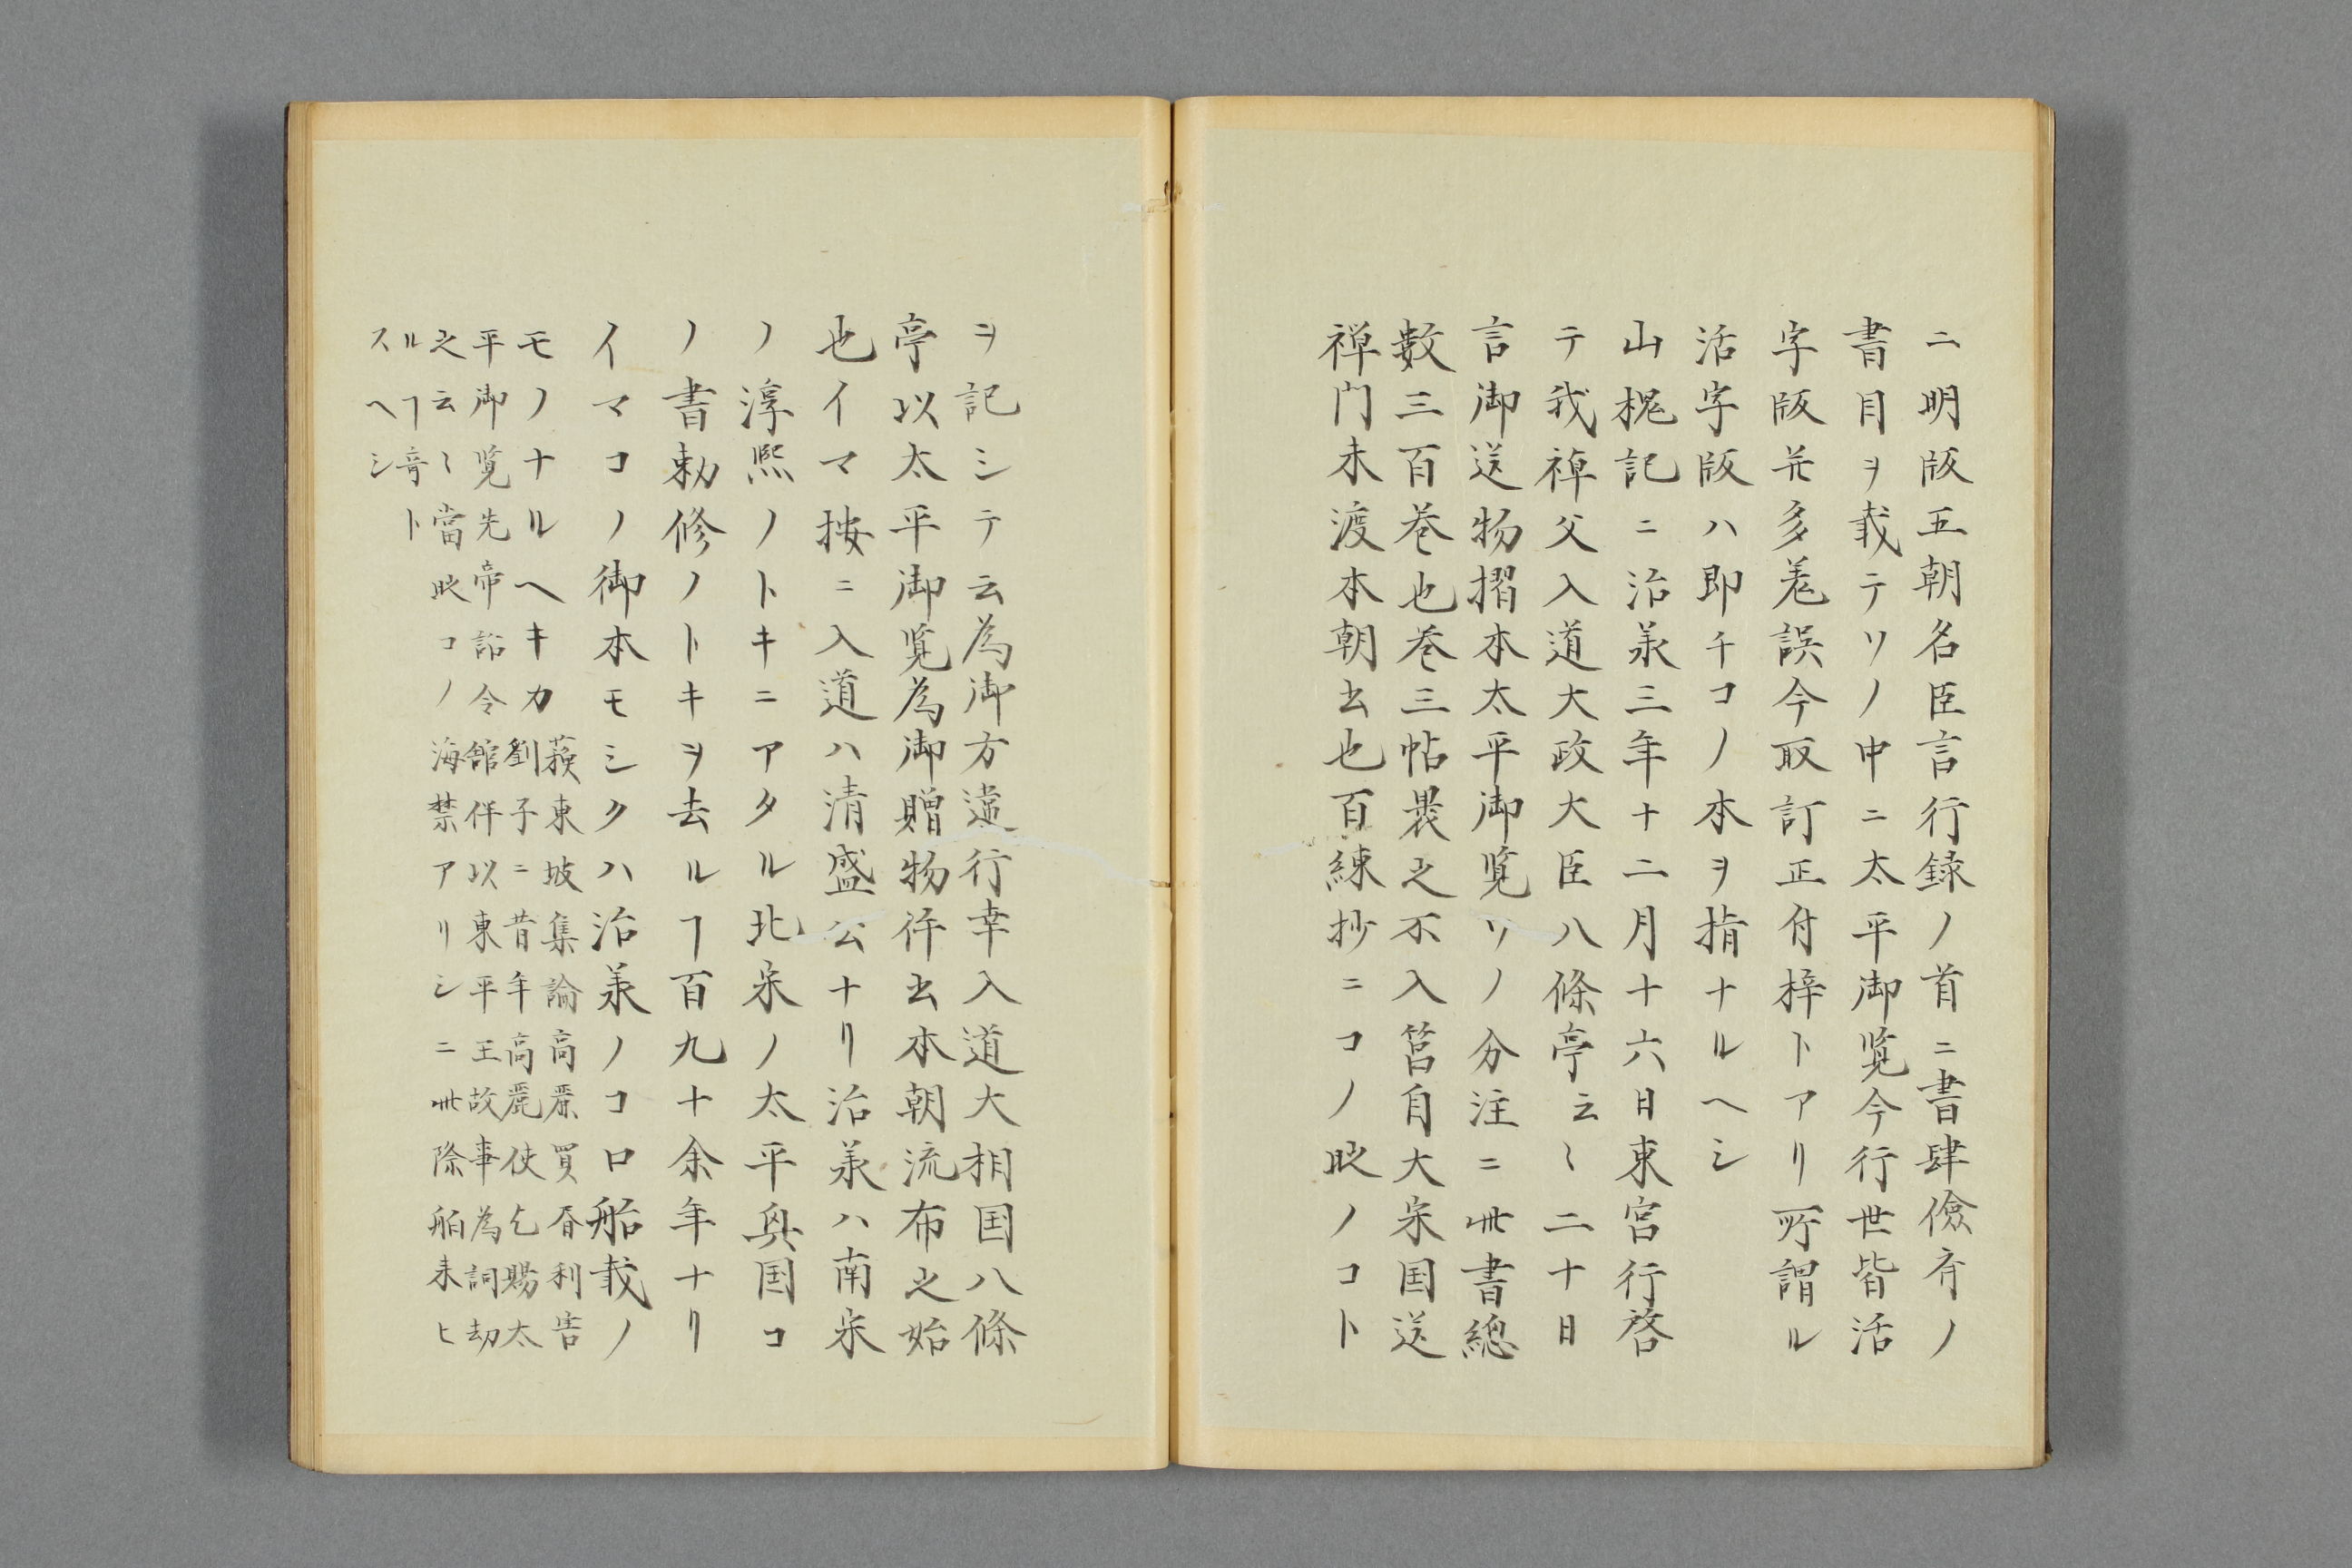 ニ明版五朝名臣言行録ノ首ニ書肆儉斉ノ
書目ヲ載テソノ中ニ太平御覧今行世皆活
字版並多差誤今取訂正付梓トアリ所謂ル
活字版ハ即チコノ本ヲ指ナルヘシ
山槐記ニ治承三年十二月十六日東宮行啓
テ我禅父入道大政大臣八條亭云〻二十日
言御送物摺本太平御覧ソノ分注ニ此書總
數三百巻也巻三帖畏之不入筥自大宋国送
禅門未渡本朝云也百練抄ニコノ時ノコト
ヲ記シテ云為御方違行幸入道大相国八條
亭以太平御覧為御贈物件云本朝流布之始
也イマ按ニ入道ハ清盛公ナリ治承ハ南宋
ノ淳熙ノトキニアタル北宋ノ太平興国コ
ノ書勅修ノトキヲ去ルヿ百九十余年ナリ
イマコノ御本モシクハ治承ノコロ船載ノ
モノナルヘキカ 蘓東坡集論高麗買居利害
劉子ニ昔年高麗使乞賜太
平御覧先帝詔令舘伴以東平王故事為詞却
之云〻當時コノ海禁アリシニ此際舶来ヒ
ルヿ竒ト
スヘシ